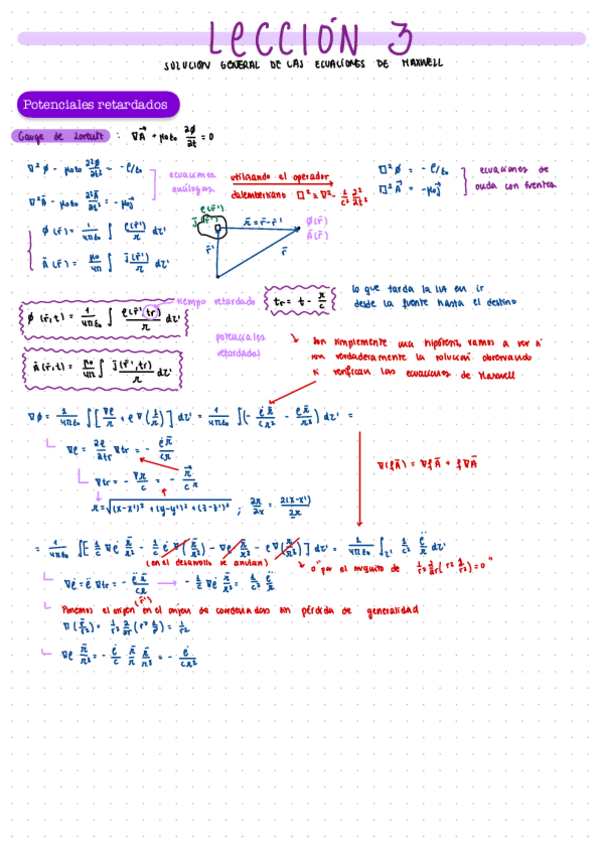 LECCIÓN 3
SOLUCIÓN GENERAL DE LAS ECUACIONES DE MAXWELL
Potenciales retardados
Gauge de Lorentz : ∇Ā + μ₀ε₀ ∂ϕ/∂t = 0
∇²ϕ - μ₀ε₀ ∂²ϕ/∂t² = -ρ/ε₀
∇²Ā - μ₀ε₀ ∂²Ā/∂t² = -μ₀j̄
ecuaciones análogas
utilizando el operador
dalembertiano □² = ∇² - 1/c² ∂²/∂t²
□²ϕ = -ρ/ε₀
□²Ā = -μ₀j̄
ecuaciones de
onda con fuentes
ϕ(r̄) = 1/4πε₀ ∫ ρ(r̄')/r dτ'
Ā(r̄) = μ₀/4π ∫ j̄(r̄')/r dτ'
ρ(r̄')
j̄(r̄')
r̄ = r̄ - r̄'
ϕ(r̄)
Ā(r̄)
r̄'
r̄
ϕ(r̄,t) = 1/4πε₀ ∫ ρ(r̄',tr)/r dτ'
tiempo retardado
tr = t - r/c
lo que tarda la luz en ir
desde la fuente hasta el destino
Ā(r̄,t) = μ₀/4π ∫ j̄(r̄',tr)/r dτ'
potenciales
retardados
son simplemente una hipótesis, vamos a ver si
son verdaderamente la solución observando
si verifican las ecuaciones de Maxwell
∇ϕ = 1/4πε₀ ∫ [∇ρ/r + ρ∇(1/r)] dτ' = 1/4πε₀ ∫ (- ρ̇r̄/cr² - ρr̄/r³) dτ' =
∇ρ = ∂ρ/∂tr ∇tr = - ρ̇r̄/cr
∇(fĀ) = ∇fĀ + f∇Ā
∇tr = - ∇r/c = - r̄/cr
r = √(x-x')² + (y-y')² + (z-z')² ; ∂r/∂x = 2(x-x')/2r
(en el desarrollo se anulan)
0 "por el truquito de 1/r² ∂/∂r (r² 1/r²) = 0"
∇ρ̇ = ρ̈ ∇tr = - ρ̈r̄/cr → - 1/c ∇ρ̇ r̄/r² = 1/c² ρ̈/r
Ponemos el origen (r̄') en el origen de coordenadas sin pérdida de generalidad
∇(r̄/r²) = 1/r² ∂/∂r (r² 1/r) = 1/r²
∇ρ r̄/r³ = - ρ̇/c r̄/r r̄/r³ = - ρ̇/cr²